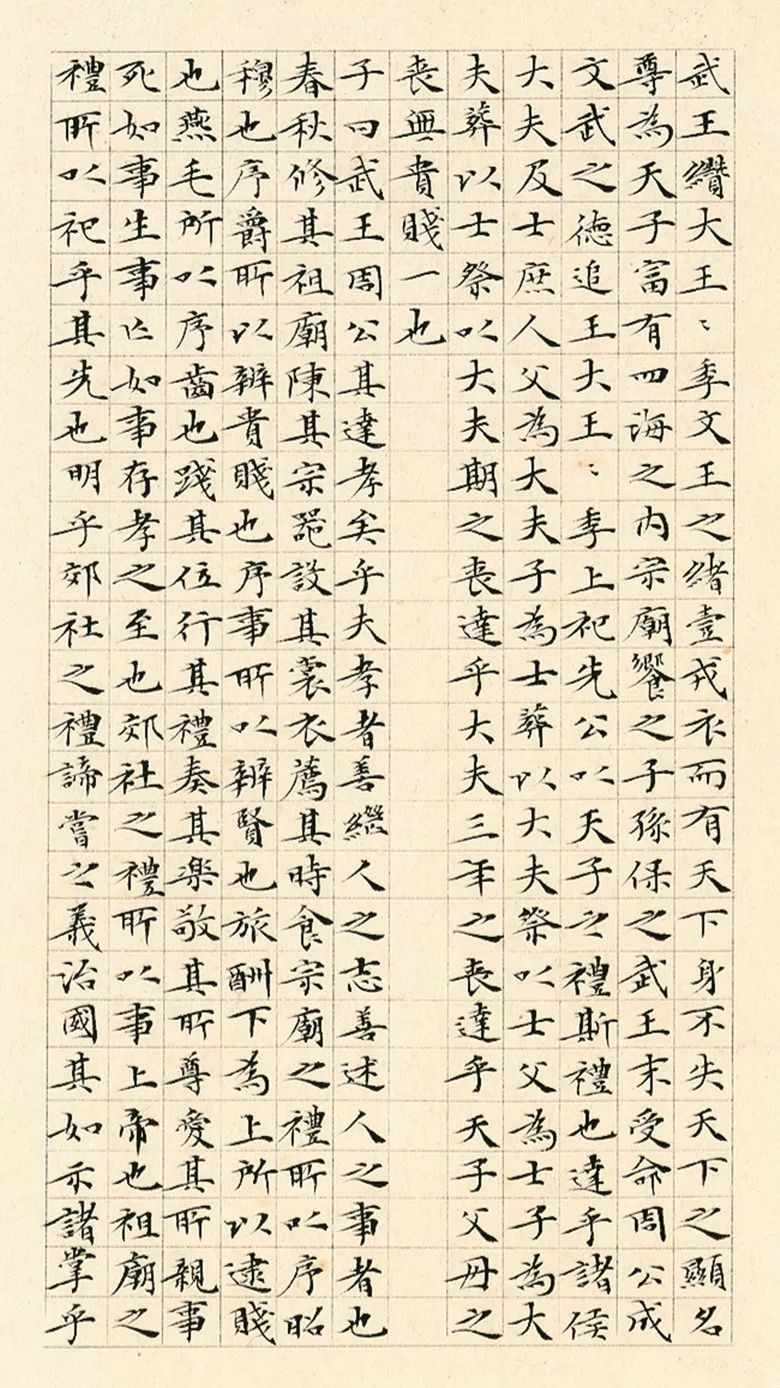 武王纘大王〻季文王之緒壹戎衣而有天下身不失天下之顯名
尊為天子富有四海之内宗廟饗之子孫保之武王末受命周公成
文武之德追王大王〻季上祀先公以天子之禮斯禮也達乎諸侯
大夫及士庶人父為大夫子為士葬以大夫祭以士父為士子為大
夫葬以士祭以大夫期之喪達乎大夫三年之喪達乎天子父母之
喪無貴賤一也
子曰武王周公其達孝矣乎夫孝者善繼人之志善述人之事者也
春秋修其祖廟陳其宗器設其裳衣薦其時食宗廟之禮所以序昭
穆也序爵所以辨貴賤也序事所以辨賢也旅酬下為上所以逮賤
也燕毛所以序齒也踐其位行其禮奏其樂敬其所尊愛其所親事
死如事生事亡如事存孝之至也郊社之禮所以事上帝也祖廟之
禮所以祀乎其先也明乎郊社之禮諦嘗之義治國其如示諸掌乎